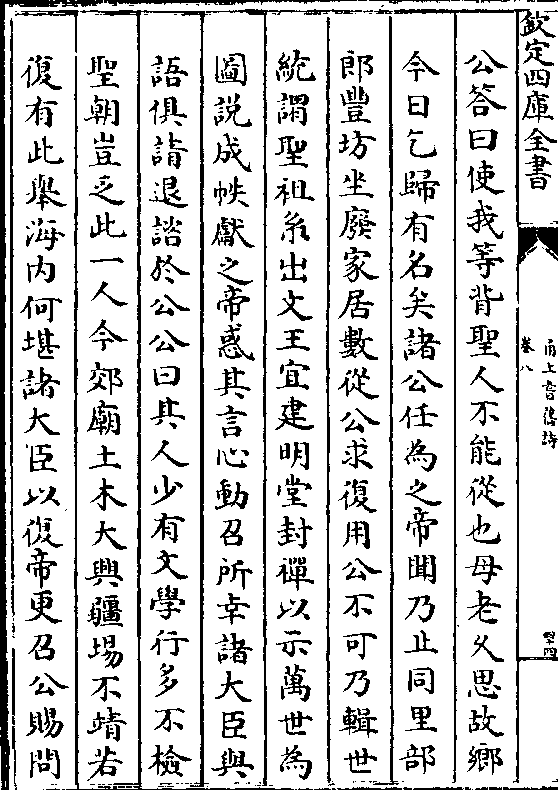 欽定四庫全書
甬上耆舊詩
卷八
四十四
公答曰使我等背聖人不能從也母老久思故鄉
今日乞歸有名矣諸公任為之帝聞乃止同里部
郎豐坊坐廢家居數從公求復用公不可乃輯世
統謂聖祖系出文王宜建明堂封禪以示萬世為
圖說成帙獻之帝惑其言心動召所幸諸大臣與
語俱請退諮於公公曰其人少有文學行多不檢
聖朝豈乏此一人今郊廟土木大興疆場不靖若
復有此舉海内何堪諸大臣以復帝更召公賜問